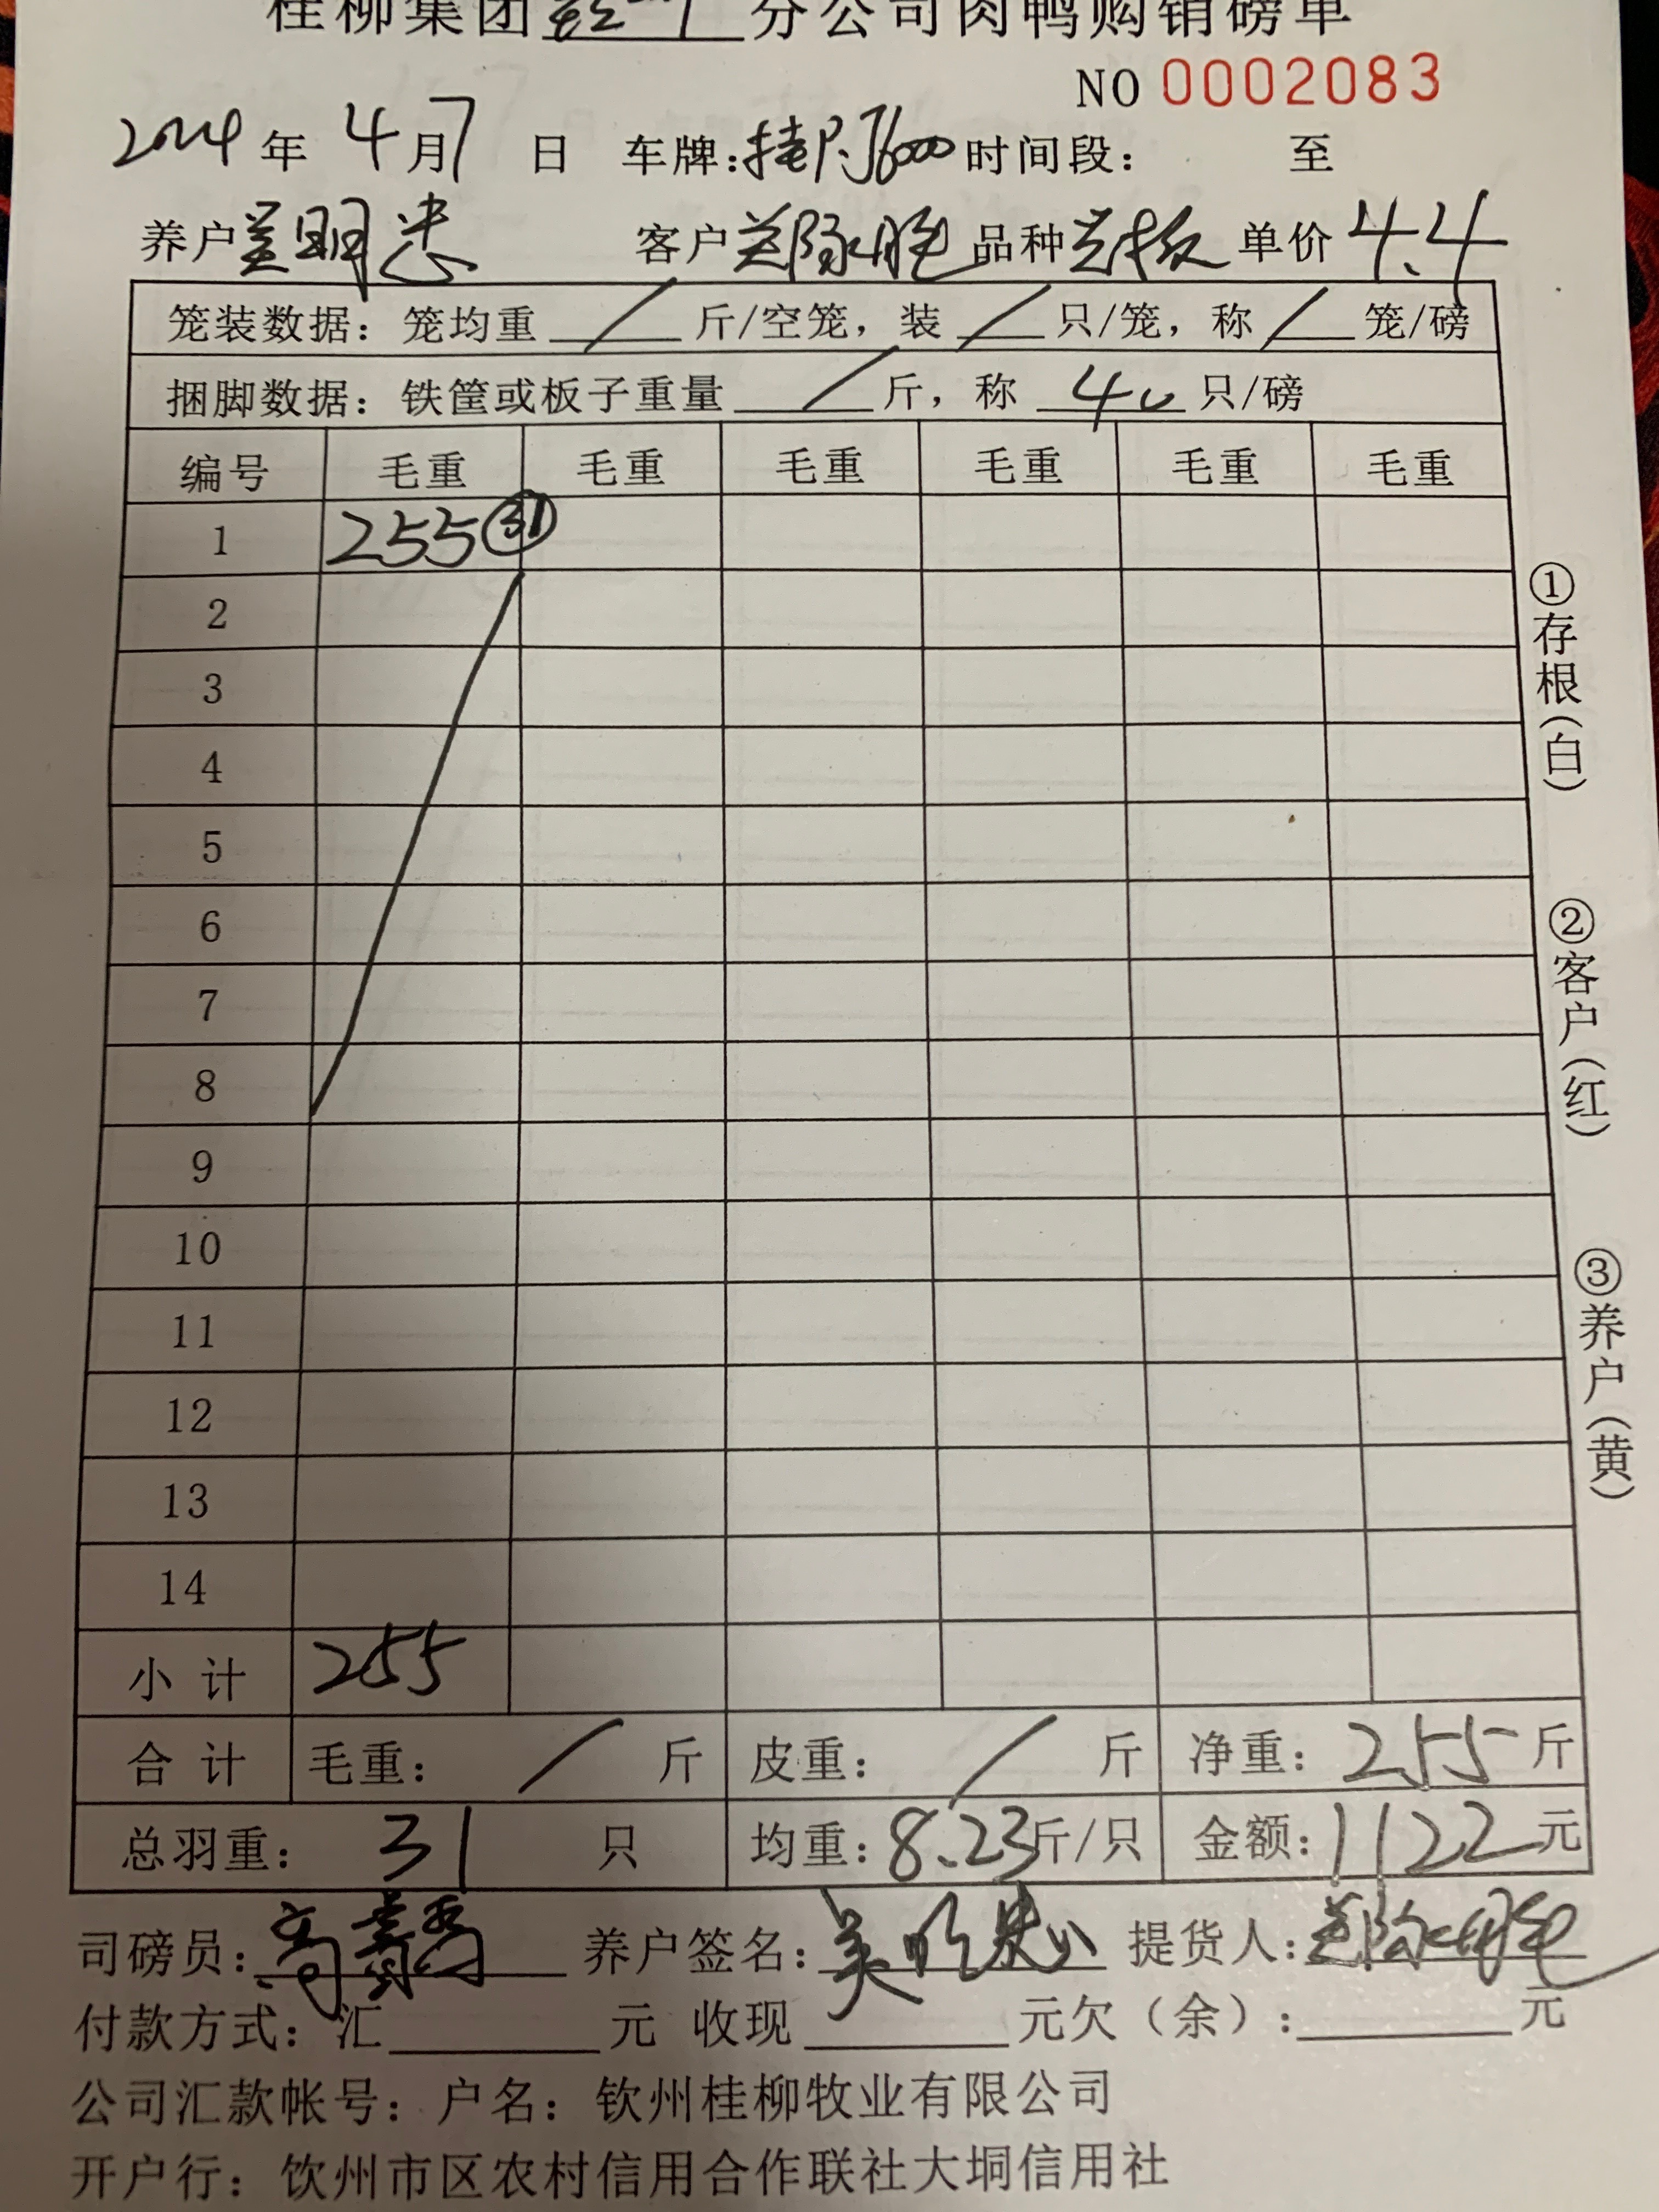 桂柳集团 分公司肉鸭购销磅单
NO 0002083
2024年 4月7日 车牌:桂P·J6000 时间段: 至
养户 吴明忠 客户 兰 品种 单价 4.4
笼装数据: 笼均重 / 斤/空笼, 装 / 只/笼, 称 / 笼/磅
捆脚数据: 铁筐或板子重量 / 斤, 称 40 只/磅
编号 毛重 毛重 毛重 毛重 毛重 毛重
1 255 ㉛
2
3
4
5
6
7
8
9
10
11
12
13
14
小计 255
合计 毛重: / 斤 皮重: / 斤 净重: 255 斤
总羽重: 31 只 均重: 8.23 斤/只 金额: 1122 元
司磅员: 高 养户签名: 吴明忠 提货人: 兰
付款方式: 汇 元 收现 元欠(余): 元
公司汇款帐号: 户名: 钦州桂柳牧业有限公司
开户行: 饮州市区农村信用合作联社大垌信用社
①存根(白)
②客户(红)
③养户(黄)